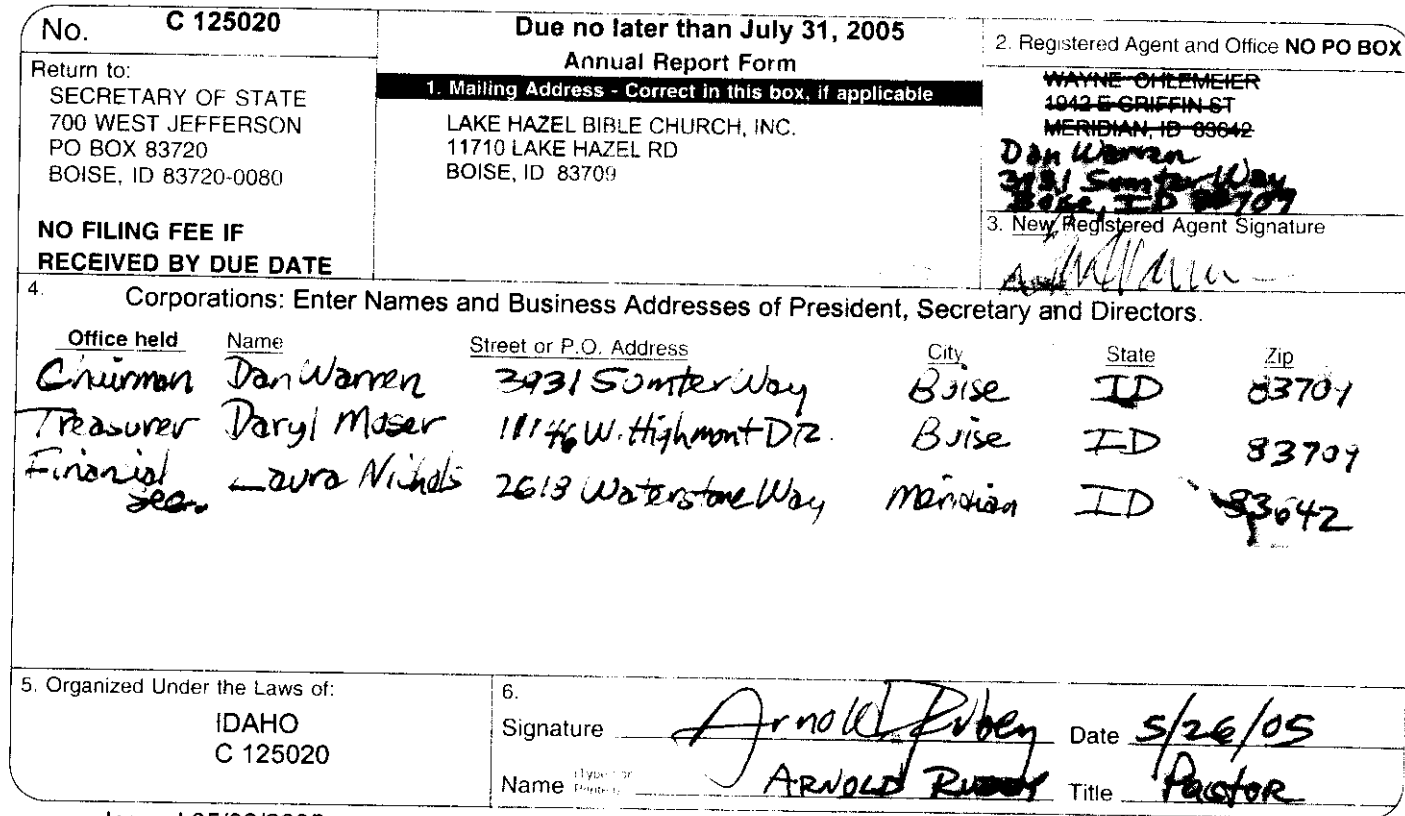 No. C 125020
Return to:
SECRETARY OF STATE
700 WEST JEFFERSON
PO BOX 83720
BOISE, ID 83720-0080
NO FILING FEE IF
RECEIVED BY DUE DATE
Due no later than July 31, 2005
Annual Report Form
1. Mailing Address - Correct in this box, if applicable
LAKE HAZEL BIBLE CHURCH, INC.
11710 LAKE HAZEL RD
BOISE, ID 83709
2. Registered Agent and Office NO PO BOX
WAYNE OHLEMEIER
1942 E GRIFFIN ST
MERIDIAN, ID 83642
Dan Warren
3931 Sumter Way
Boise, ID 83709
3. New Registered Agent Signature
4. Corporations: Enter Names and Business Addresses of President, Secretary and Directors.
Office held Name Street or P.O. Address City State Zip
Chairman Dan Warren 3931 Sumter Way Boise ID 83709
Treasurer Daryl Moser 11146 W. Highmont DR. Boise ID 83709
Financial Sec. Laura Nichols 2613 Waterstone Way Meridian ID 83642
5. Organized Under the Laws of:
IDAHO
C 125020
6.
Signature Arnold Rubey Date 5/26/05
Name (Type or Printed) ARNOLD Title PastoR